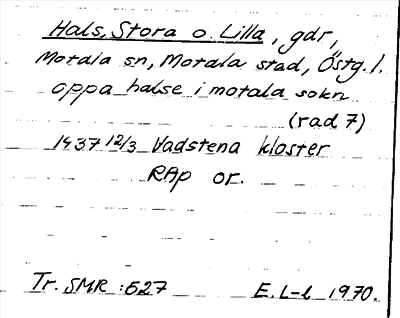 Hals, Stora o. Lilla, gdr,
Motala sn, Motala stad, Östg. l.
oppa halse i motala sokn
(rad 7)
1437 12/3 Vadstena kloster
RAp or.
Tr. SMR :527
E. L-l 1970.